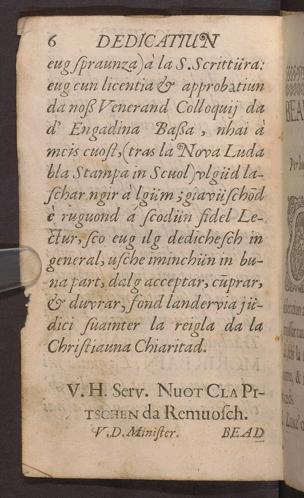 6 DEDICATIUN
eug spraunza) à la S. Scrittüra:
eug cun licentia & approbatiun
da noß Venerand Colloquij da
d' Engadina Baßa, nhai à
meis cuost, (tras la Nova Luda
bla Stampa in Scuol) vlgüd la-
schar ngir à lgüm; giavüschöd
è ruguond à scodün fidel Le-
ctur, sco eug ilg dedichesch in
general, usche iminchiün in bu-
na part, dalg acceptar, cũprar,
& duvrar, fond landervia jü-
dici suainter la reigla da la
Christiauna Chiaritad.
V. H. Serv. NUOT CLA PI-
TSCHEN da Remuosch.
V.D. Minister. BEAD